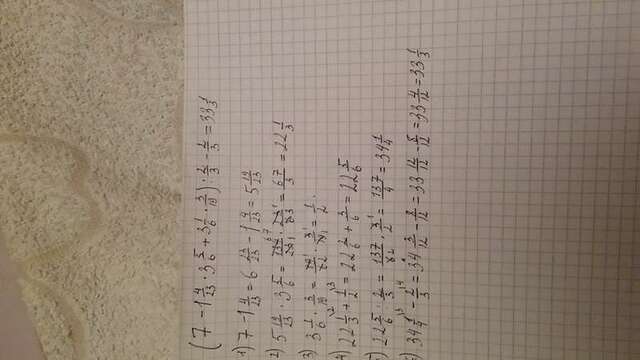 (7 - 1 4/23 · 3 5/6 + 3 1/6 · 3/19) : 2/3 - 2/3 = 33 1/3
1) 7 - 1 4/23 = 6 23/23 - 1 4/23 = 5 19/23
2) 5 19/23 · 3 5/6 = 134 67/23 1 · 23 1/6 3 = 67/3 = 22 1/3
3) 3 1/6 · 3/19 = 19 1/6 2 · 3 1/19 1 = 1/2.
4) 22 1/3 \2 + 1/2 \3 = 22 2/6 + 3/6 = 22 5/6
5) 22 5/6 : 2/3 = 137/6 2 · 3 1/2 = 137/4 = 34 1/4
6) 34 1/4 \3 - 2/3 \4 = 34 3/12 - 8/12 = 33 12/12 - 8/12 = 33 4/12 = 33 1/3